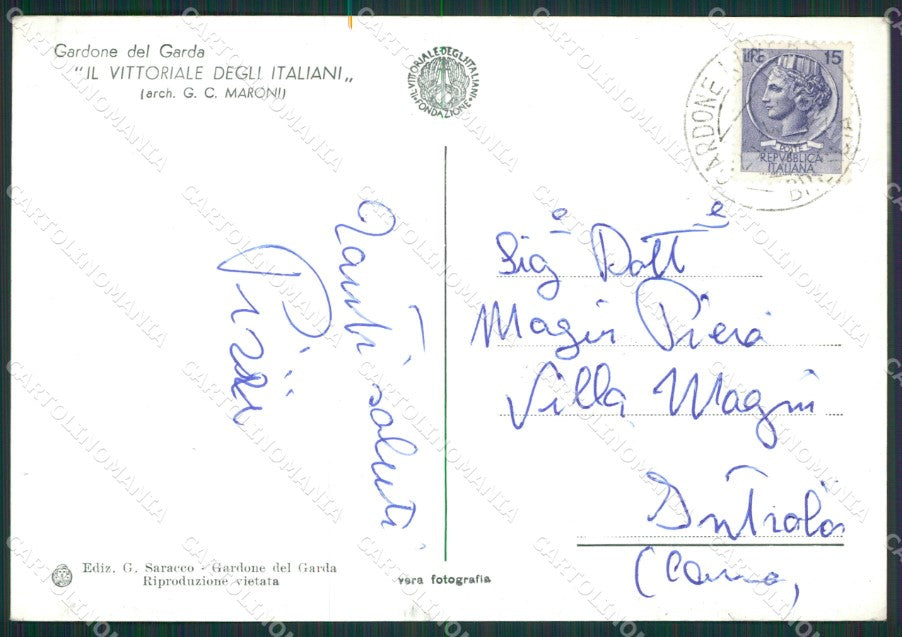 Gardone del Garda
"IL VITTORIALE DEGLI ITALIANI„
(arch. G. C. MARONI)
IL VITTORIALE DEGL'ITALIANI
FONDAZIONE
LIRE 15
POSTE
REPVBBLICA
ITALIANA
GARDONE
Tanti saluti
Sig.a Dott.
Magin Piera
Villa Magin
(
Ediz. G. Saracco - Gardone del Garda
Riproduzione vietata
vera fotografia
CARTOLINOMANIA